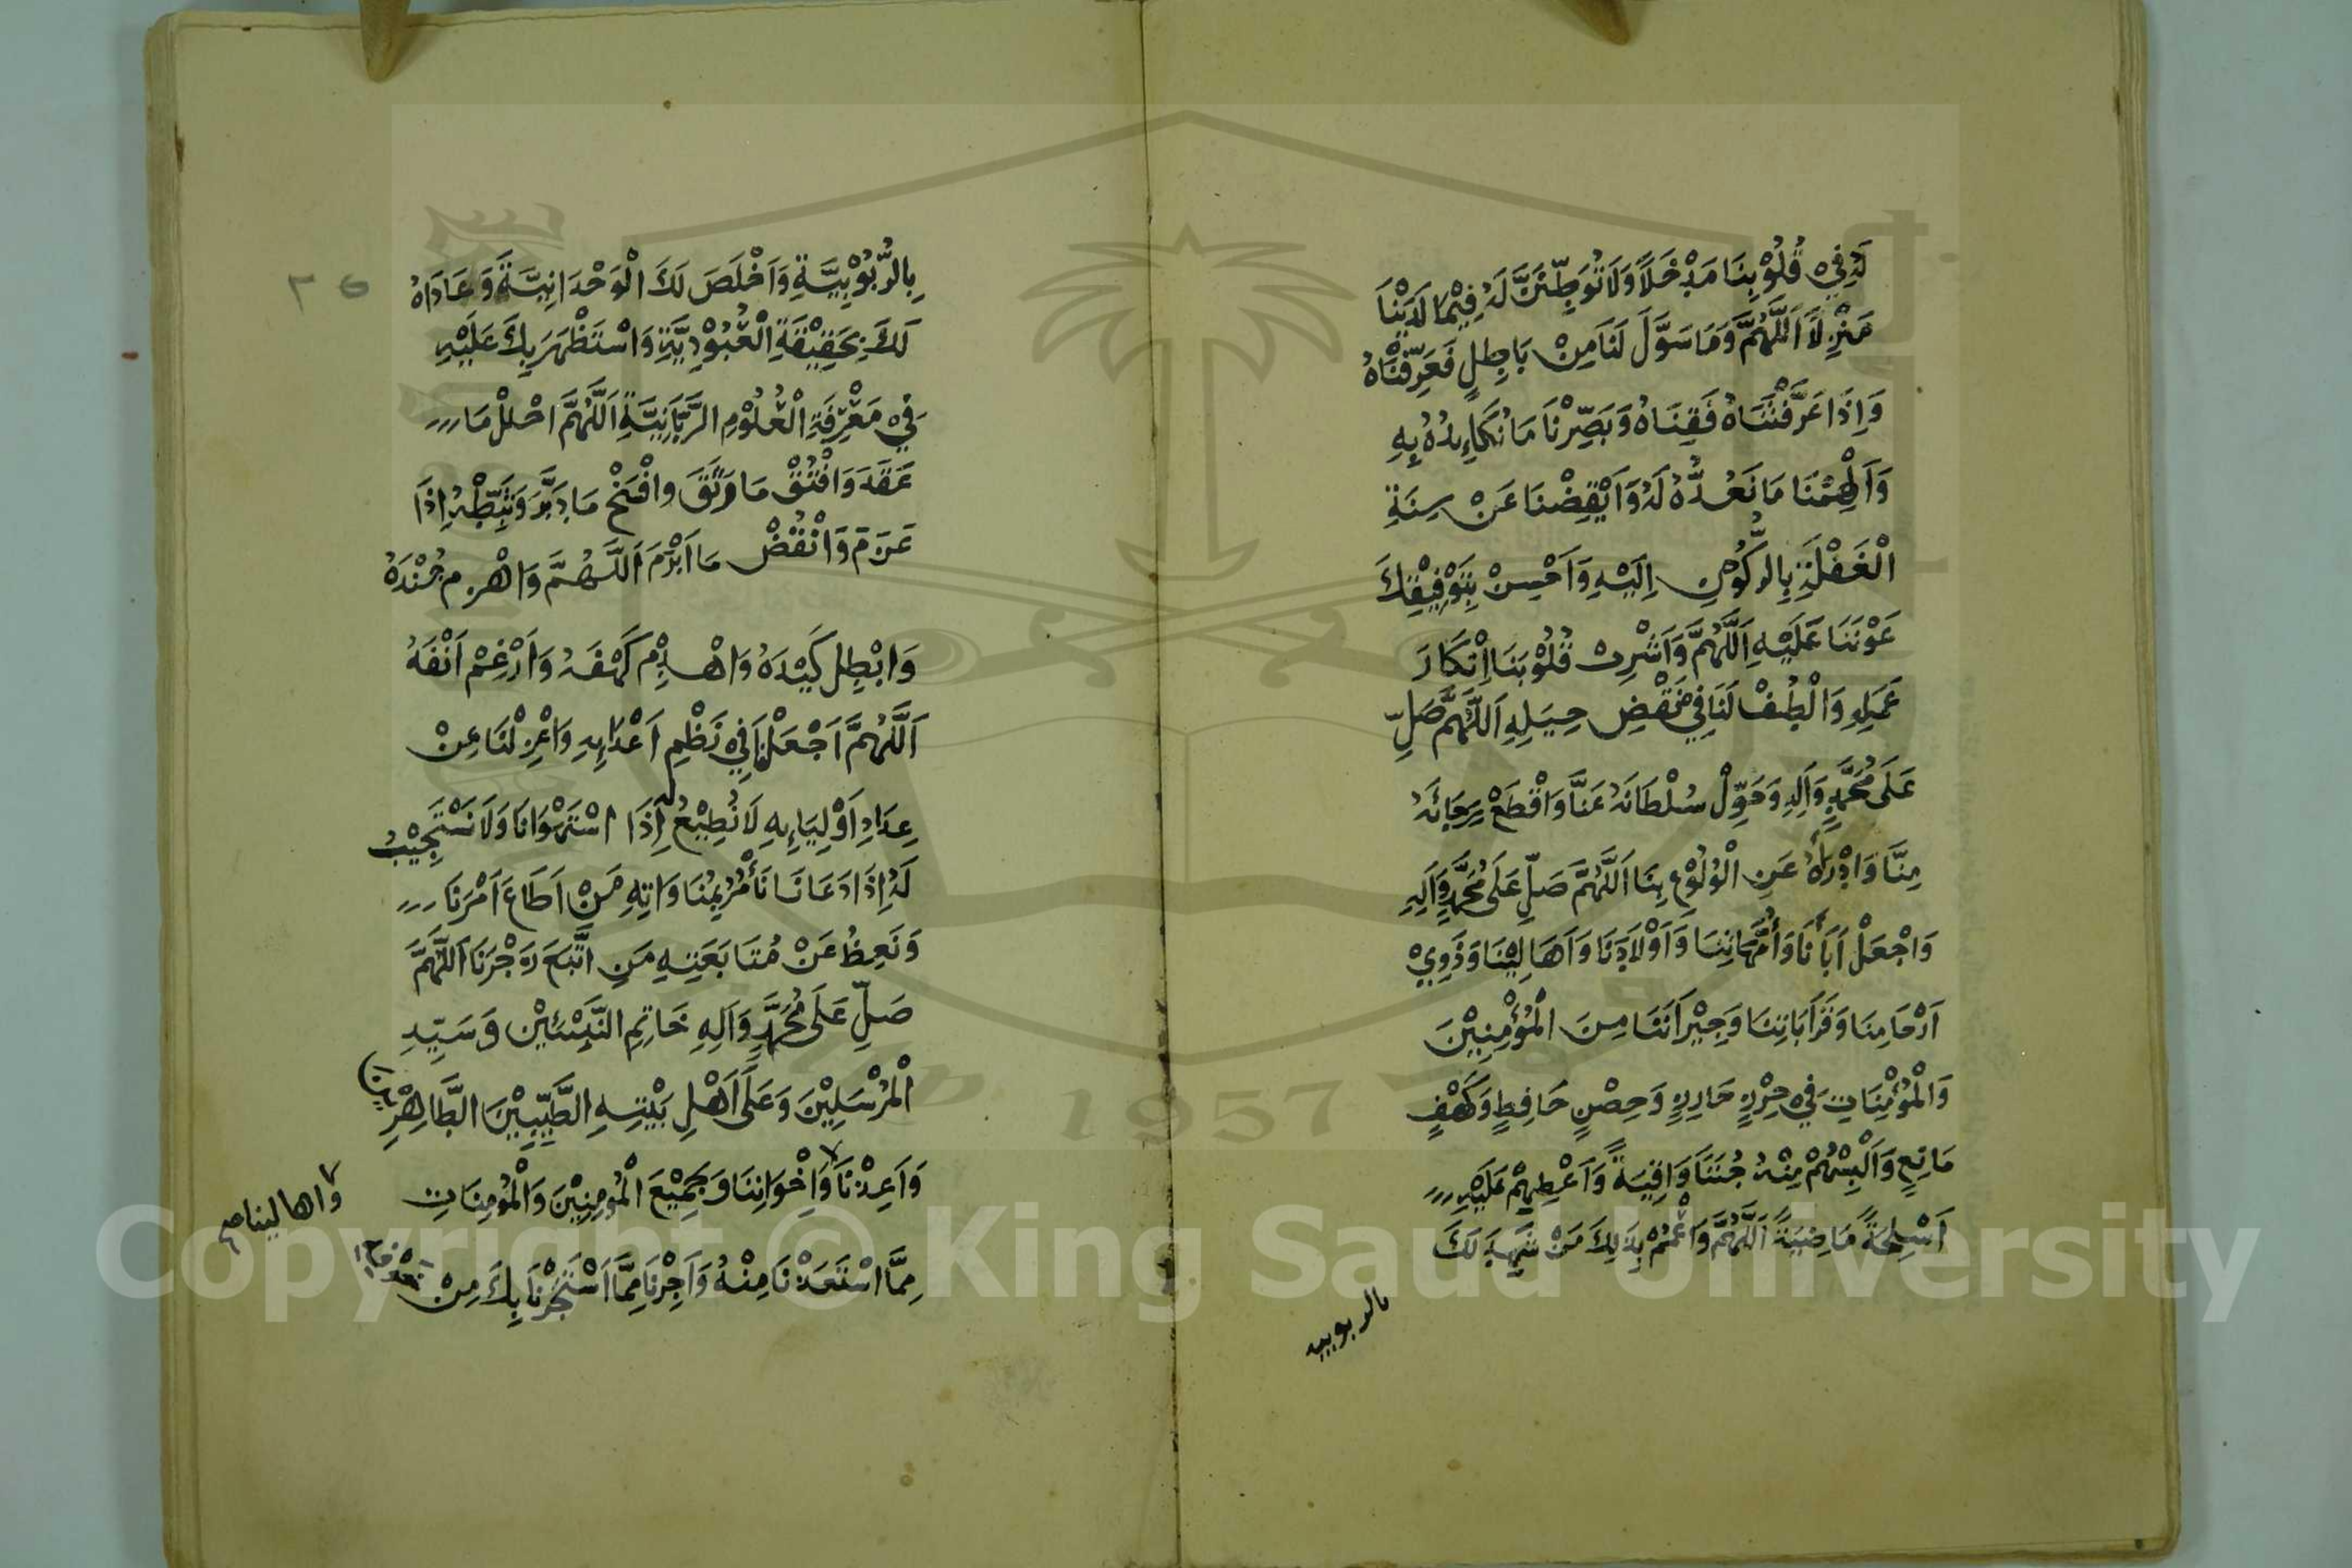 لَهُ فِيْ قُلُوْبِنَا مَدْخَلًا وَلَا تُوَطِّنَنَّ لَهُ فِيْمَا لَدَيْنَا
مَنْزِلًا اَللَّهُمَّ وَمَا سَوَّلَ لَنَا مِنْ بَاطِلٍ فَعَرِّفْنَاهُ
وَاِذَا عَرَّفْتَنَاهُ فَقِنَاهُ وَبَصِّرْنَا مَا نُكَايِدُهُ بِهِ
وَاَلْهِمْنَا مَا نَعُدُّهُ لَهُ وَاَيْقِضْنَا عَنْ سِنَةِ
الْغَفْلَةِ بِالرُّكُوْنِ اِلَيْهِ وَاَحْسِنْ بِتَوْفِيْقِكَ
عَوْنَنَا عَلَيْهِ اَللَّهُمَّ وَاَشْرِبْ قُلُوْبَنَا اِنْكَارَ
عَمَلِهِ وَالْطُفْ لَنَا فِيْ نَقْضِ حِيَلِهِ اَللَّهُمَّ صَلِّ
عَلَى مُحَمَّدٍ وَاَلِهِ وَحَوِّلْ سُلْطَانَهُ عَنَّا وَاقْطَعْ رَجَائَهُ
مِنَّا وَادْرَاْهُ عَنِ الْوُلُوْعِ بِنَا اَللَّهُمَّ صَلِّ عَلَى مُحَمَّدٍ وَاَلِهِ
وَاجْعَلْ اَبَآئَنَا وَاُمَّهَاتِنَا وَاَوْلَادَنَا وَاَهَالِيْنَا وَذَوِيْ
اَرْحَامِنَا وَقَرَابَاتِنَا وَجِيْرَانَنَا مِنَ الْمُؤْمِنِيْنَ
وَالْمُؤْمِنَاتِ فِيْ حِرْزٍ حَارِزٍ وَحِصْنٍ حَافِظٍ وَكَهْفٍ
مَانِعٍ وَاَلْبِسْهُمْ مِنْهُ جُنَنًا وَاقِيَةً وَاَعْطِهِمْ عَلَيْهِ
اَسْلِحَةً مَاضِيَةً اَللَّهُمَّ وَاعْمُمْ بِذَلِكَ مَنْ شَهِدَ لَكَ
بالربوبيه
بِالرُّبُوْبِيَّةِ وَاَخْلَصَ لَكَ الْوَحْدَانِيَّةَ وَعَادَاهُ
لَكَ بِحَقِيْقَةِ الْعُبُوْدِيَّةِ وَاسْتَظْهَرَ بِكَ عَلَيْهِ
فِيْ مَعْرِفَةِ الْعُلُوْمِ الرَّبَّانِيَّةِ اَللَّهُمَّ احْلُلْ مَا
عَقَدَ وَافْتُقْ مَا رَتَقَ وافْسَخْ مَا دَبَّرَ وَثَبِّطْهُ اِذَا
عَزَمَ وَانْقُضْ مَا اَبْرَمَ اَللَّهُمَّ وَاهْزِمْ جُنْدَهُ
وَابْطِلْ كَيْدَهُ وَاهْدِمْ كَهْفَهُ وَاَرْغِمْ اَنْفَهُ
اَللَّهُمَّ اجْعَلْنَا فِيْ نَظْمِ اَعْدَائِهِ وَاعْزِلْنَا عِنْ
عِدَادِ اَوْلِيَاءِهِ لَا نُطِيْعُ لَهُ اِذَا اسْتَهْوَانَا وَلَا نَسْتَجِيْبُ
لَهُ اِذَا دَعَانَا نَأْمُرُ بِمُنَاوَاتِهِ مَنْ اَطَاعَ اَمْرَنَا
وَنَعِظُ عَنْ مُتَابَعَتِهِ مَنِ اتَّبَعَ زَجْرَنَا اَللَّهُمَّ
صَلِّ عَلَى مُحَمَّدٍ وَاَلِهِ خَاتِمِ النَّبِيِّيْنَ وَسَيِّدِ
الْمُرْسَلِيْنَ وَعَلَى اَهْلِ بَيْتِهِ الطَّيِّبِيْنَ الطَّاهِرِيْنَ
وَاَعِذْنَا وَاِخْوَانِنَا وَجَمِيْعَ الْمُؤمِنِيْنَ وَالْمُؤمِنَاتِ
واهالينا صح
مِمَّا اسْتَعَذْنَا مِنْهُ وَاَجِرْنَا مِمَّا اسْتَجَرْنَا بِكَ مِنْ
Copyright © King Saud University
1957